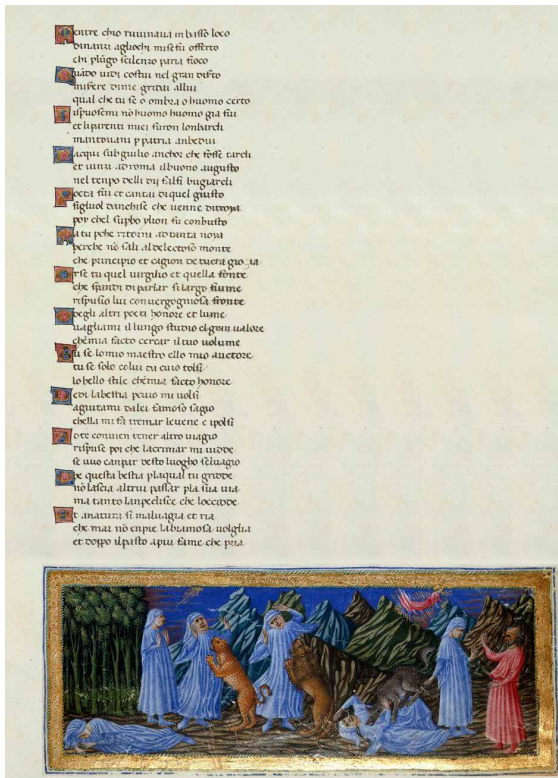 Mentre chio ruuinaua in basso loco
dinanzi agliochi mise fu offerto
chi p lũgo scilenzo paria fioco
Quãdo uidi costui nel gran disto
misere di me gridai allui
qual che tu se o ombra o huomo certo
Rispuosemi nõ huomo huomo gia fui
et liparenti miei furon lonbardi
mantouani p patria anbedui
Nacqui sub giulio anchor che fosse tardi
et uiuui ad roma ilbuono augusto
nel tenpo delli dii falsi bugiardi
Poeta fui et cantai di quel giusto
figluol danchise che uenne ditroya
poy chel supbo ylion fu conbusto
Ma tu pche ritorni ad tanta noya
perche nõ sali aldelectoso monte
che principio et cagion de tucta gioia
Or se tu quel uirgilio et quella fonte
che spandi di parlar si largo fiume
rispusio lui con uergognosa fronte
O degli altri poeti honore et lume
uagliami il lungo studio elgran ualore
chemia facto cercar il tuo uolume
Tu se lo mio maestro ello mio auctore
tu se solo colui da cuio tolsi
lo bello stile chemia facto honore
Vedi labestia p cuio mi uolsi
agiutami dalei famoso sagio
chella mi fa tremar leuene e ipolsi
A te conuien tener altro uiagio
rispuse poi che lacrimar mi uidde
se uuo canpar desto luogho seluagio
Che questa bestia plaqual tu gridde
nõ lascia altrui passar pla sua uia
ma tanto lanpedisce che loccidde
Et anatura si maluagia et ria
che mai nõ enpie labramosa uolglia
et doppo ilpasto apiu fame che pria